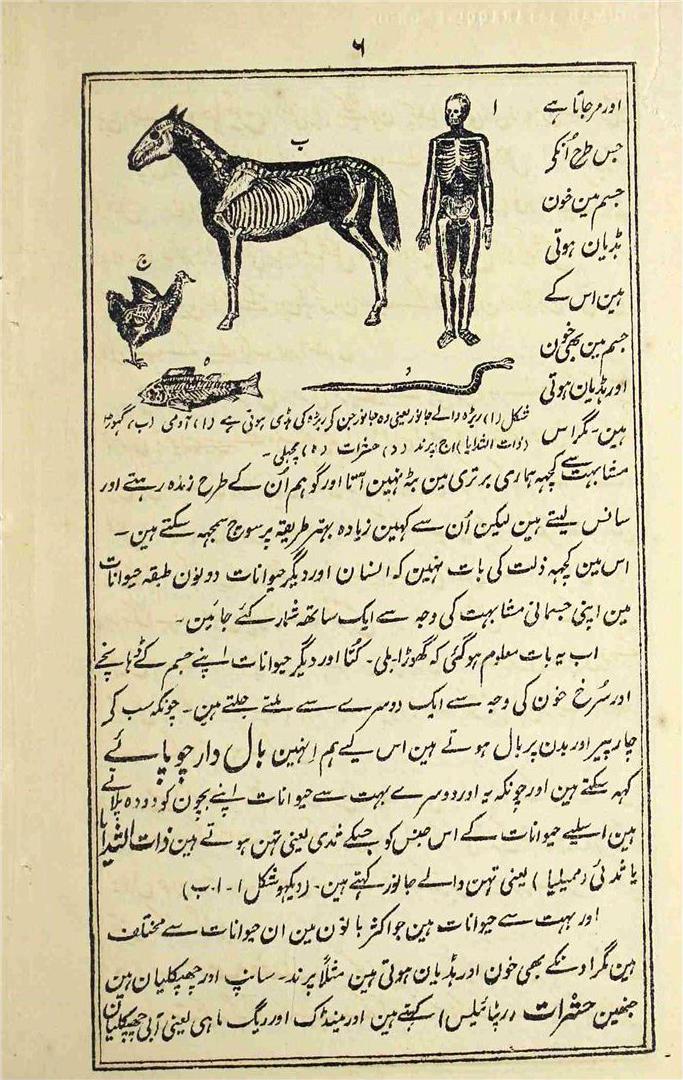 ۶
اور مرجاتا ہے
جس طرح اُنکی
جسم مین خون
ہڈیان ہوتی
ہین اس کے
جسم مین بھی خون
اور ہڈیان ہوتی
ہین۔ مگر اس
ا
ب
ج
د
ہ
شکل (۱) ریڑہ والے جانور یعنی وہ جانور جن کر ریڑہ کی ہڈی ہوتی ہے (ا) آدمی (ب) گہوڑا
(ذات الثدایا) (ج) پرند (د) حشرات (ہ) مچہلی۔
مشابہت سے کچہہ ہماری برتری مین بٹہ نہین آتا اور گو ہم اُن کے طرح زندہ رہتے اور
سانس لیتے ہین لیکن اُن سے کہین زیادہ بہتر طریقہ پر سوچ سمجہہ سکتے ہین۔
اس مین کچہہ ذلت کی بات نہین کہ انسان اور دیگر حیوانات دونون طبقہ حیوانات
مین اپنی جسمانی مشابہت کی وجہ سے ایک ساتھ شمار کئے جائین۔
اب یہ بات معلوم ہوگئی کہ گھوڑا۔ بلی۔ کتّا اور دیگر حیوانات اپنے جسم کے ڈہانچے
اور سُرخ خون کی وجہ سے ایک دوسرے سے ملتے جلتے ہین۔ چونکہ سب کر
چار پیر اور بدن پر بال ہوتے ہین اس لیے ہم اِنہین بال دار چوپائے
کہہ سکتے ہین اور چونکہ یہ اور دوسرے بہت سے حیوانات اپنے بچون کو دودہ پلاتے
ہین اسلیے حیوانات کے اس جنس کو جسکے ثدی یعنی تہن ہوتے ہین ذات الثدایا
یا ثدئی (ممیلیا) یعنی تہن والے جانور کہتے ہین۔ (دیکہو شکل ۱۔ ا۔ ب)
اور بہت سے حیوانات ہین جو اکثر باتون مین ان حیوانات سے مختلف
ہین مگر اونکے بھی خون اور ہڈیان ہوتی ہین مثلاً پرند۔ سانپ اور چھپکلیان ہین
جنھین حشرات (رپٹائیلس) کہتے ہین اور مینڈک اور ریگ ماہی یعنی آبی چھپکلیان